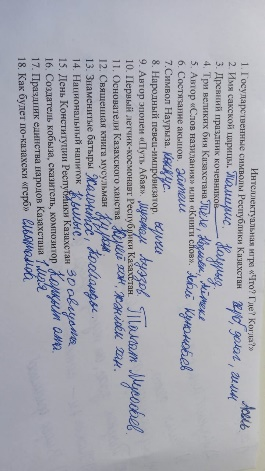 Интеллектуальная игра «Что? Где? Когда?»
1. Государственные символы Республики Казахстан герб, флаг, гимн
2. Имя сакской царицы. Томирис
3. Древний праздник кочевников. Наурыз
4. Три великих бия Казахстана Толе, Казыбек, Айтеке
5. Автор «Слов назидания» или «Книги слов». Абай Кунанбаев
6. Состязание акынов. айтыс
7. Символ Наурыза.
8. Народный певец-импровизатор. акын
9. Автор эпопеи «Путь Абая» Мухтар Ауэзов
10. Первый летчик-космонавт Республики Казахстан. Талгат Мусабаев
11. Основатели Казахского ханства Керей хан, Жанибек хан.
12. Священная книга мусульман Куран
13. Знаменитые батыры.
14. Национальный напиток Кымыс.
15. День Конституции Республики Казахстан 30 августа
16. Создатель кобыза, сказитель, композитор Коркыт ата
17. Праздник единства народов Казахстана 1 мая
18. Как будет по-казахски «герб»